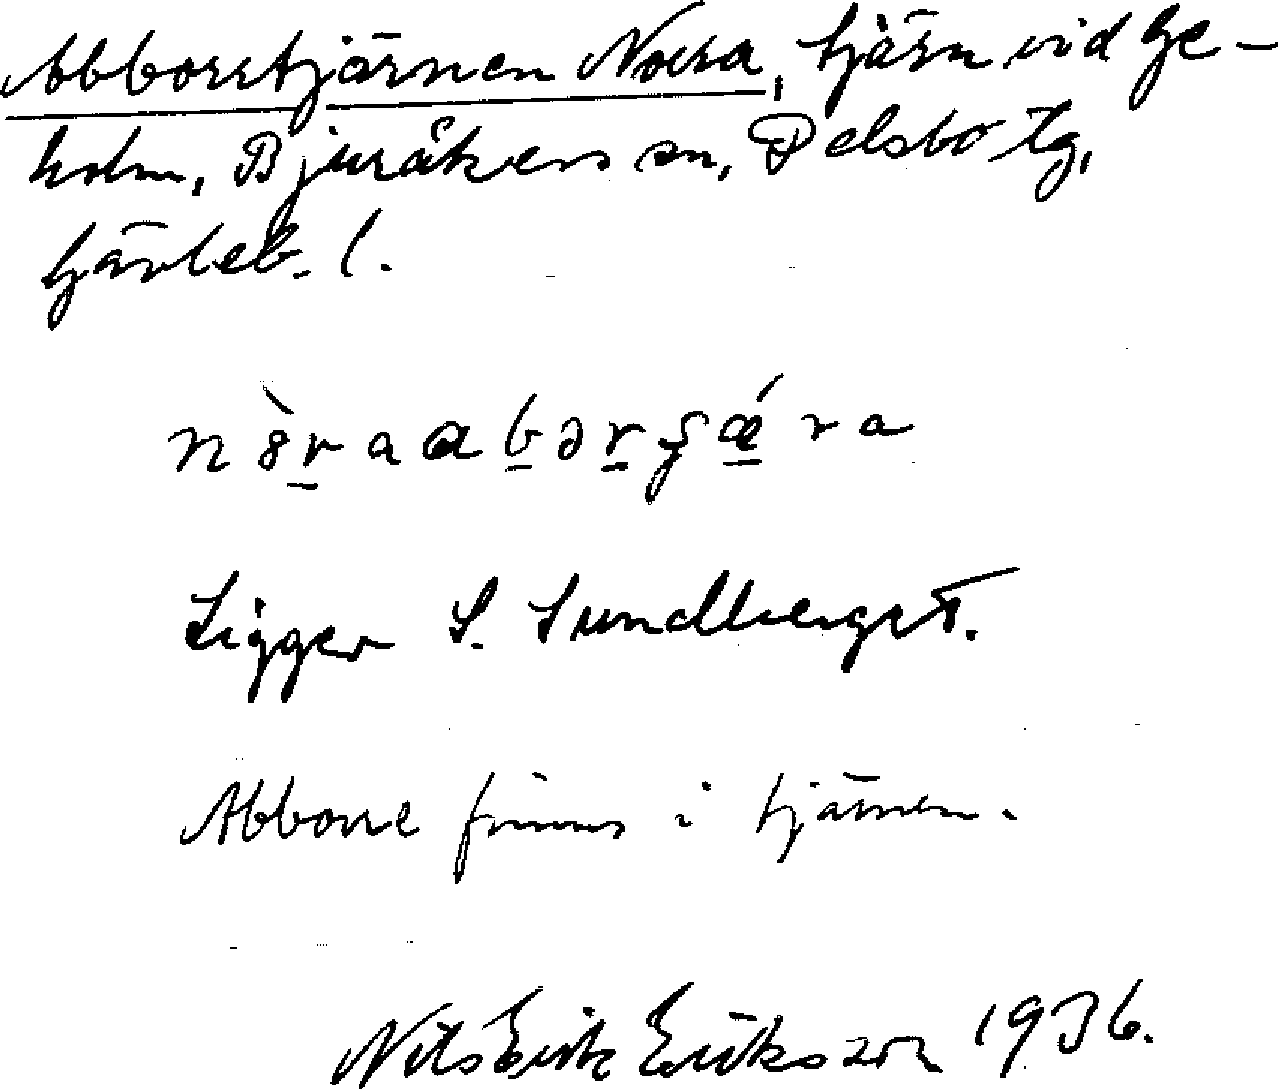 Abborrtjärnen Norra, tjärn vid Ge-
holm, Bjuråkers sn, Delsbo tg,
Gävleb. l.
Ligger S. Sundberget.
Abborre finns i tjärnen.
Nils Erik Eriksson 1936.